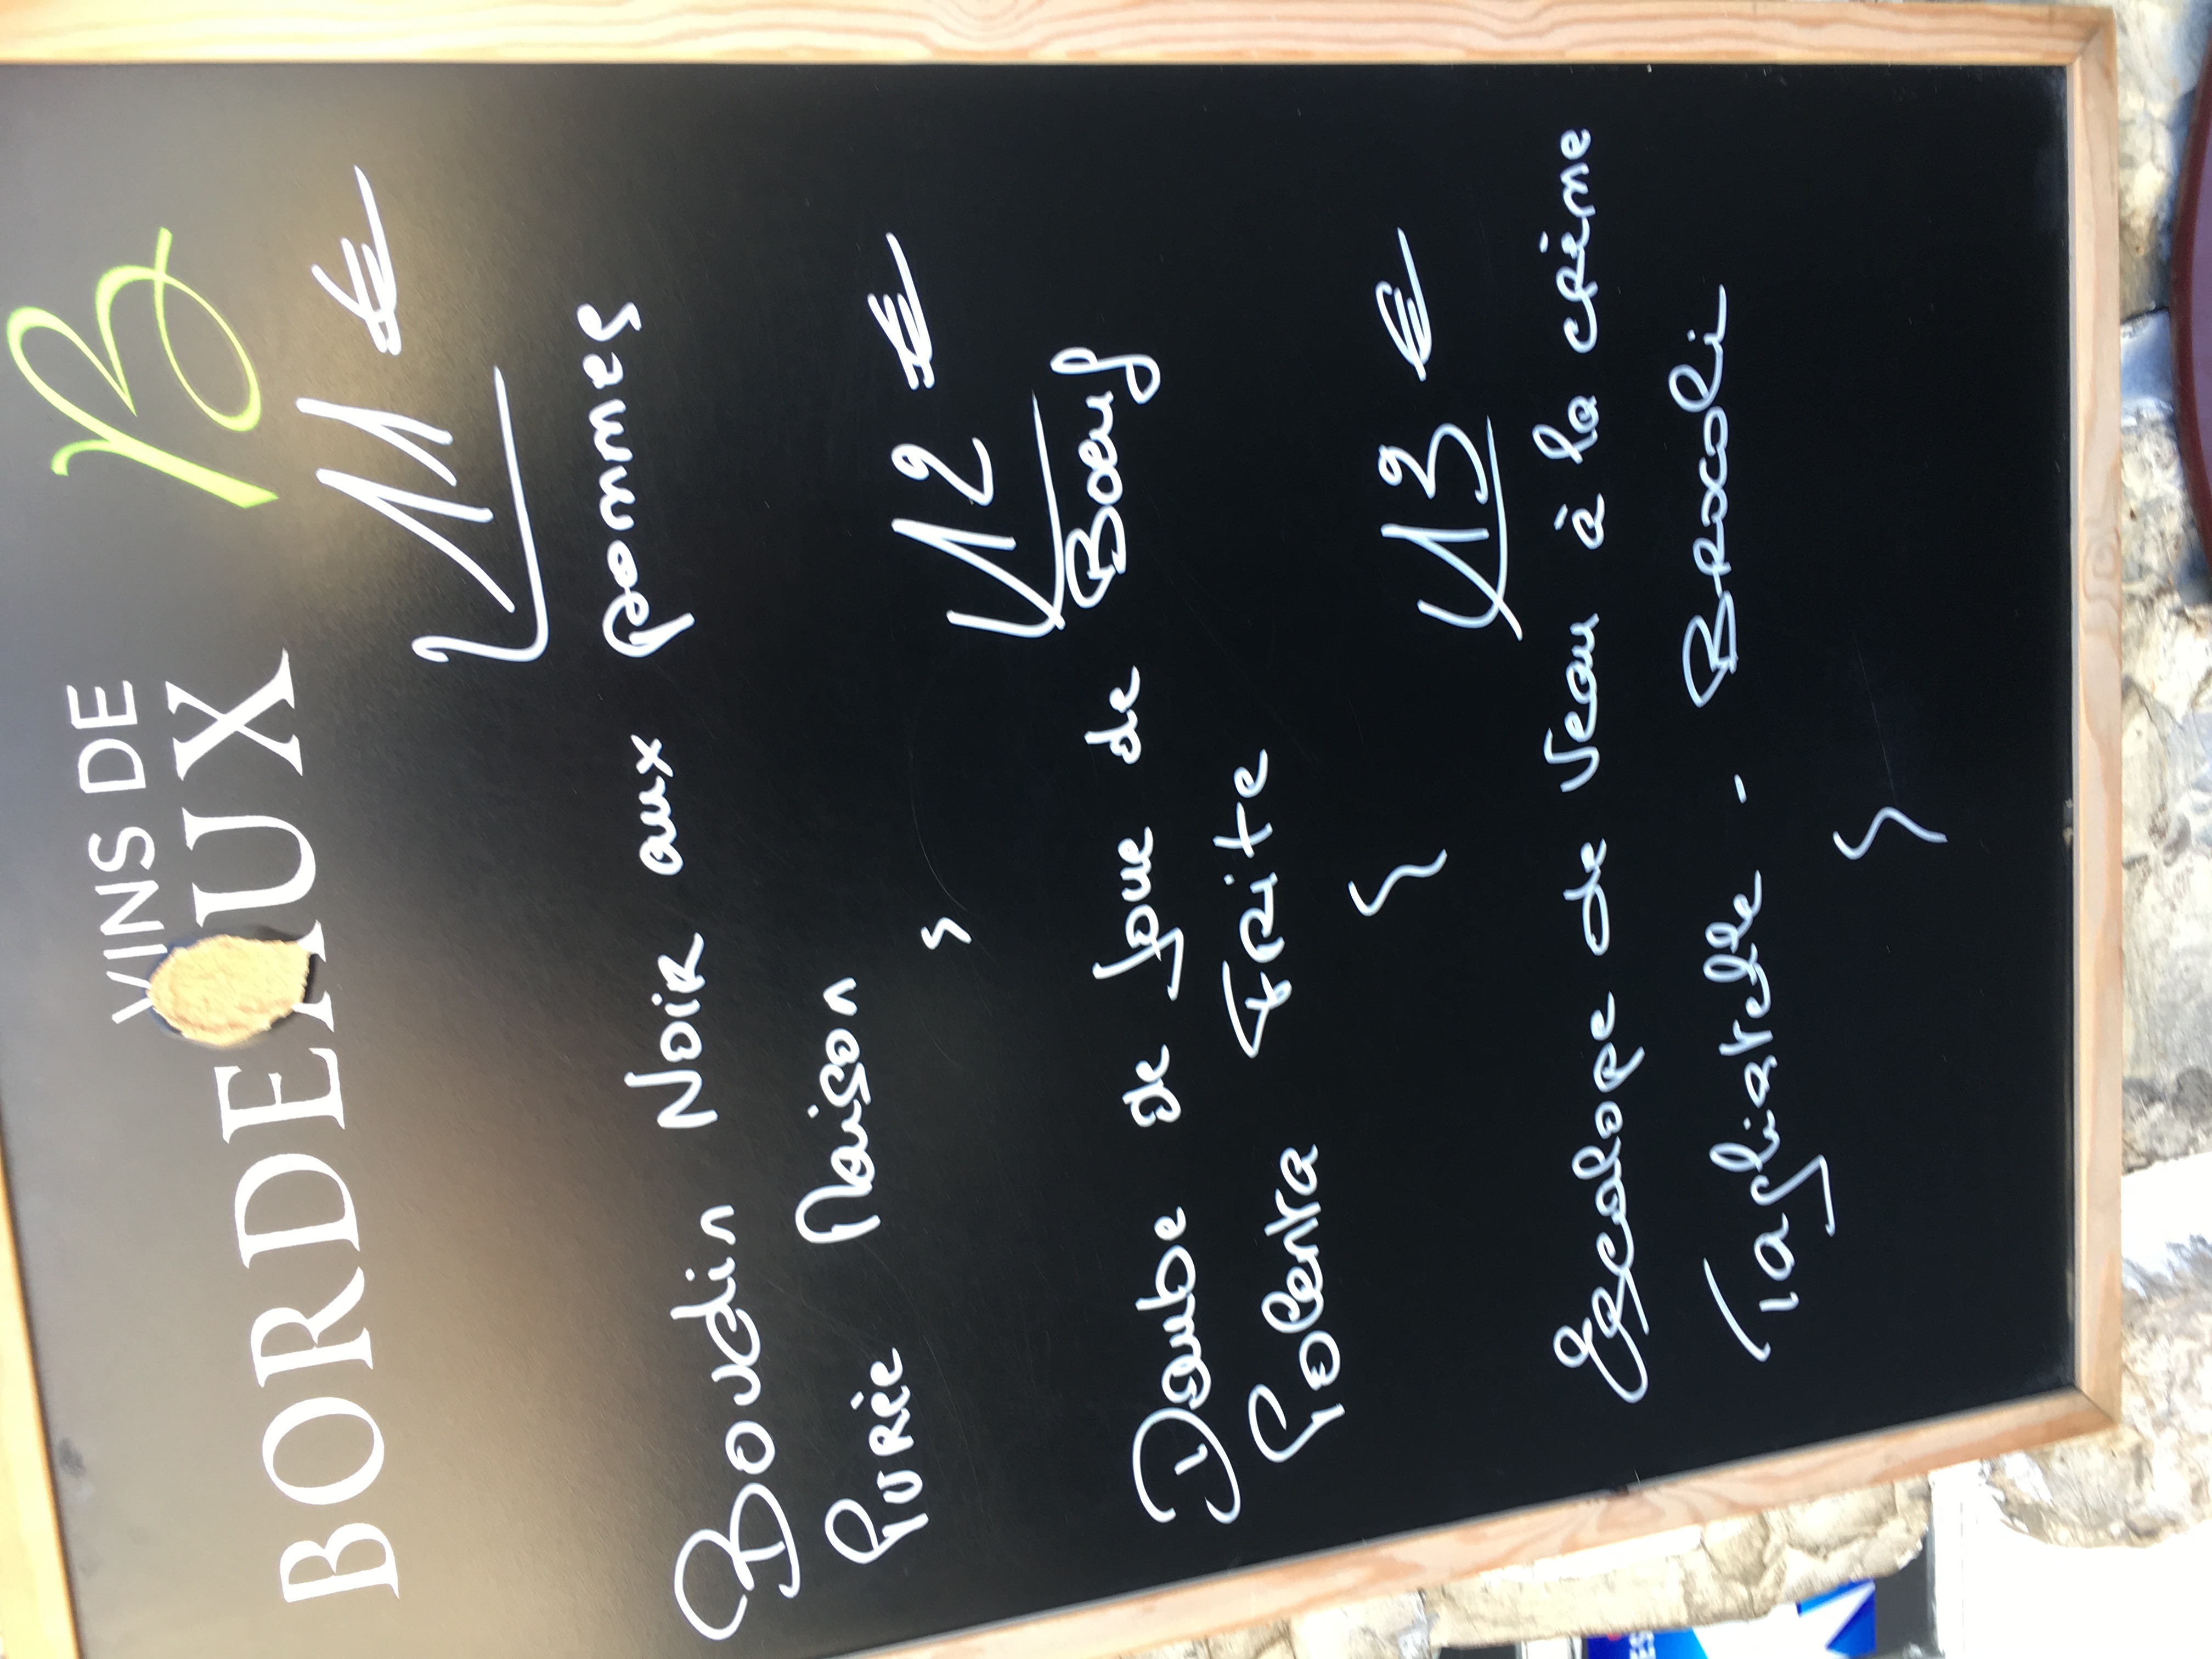 VINS DE
BORDEAUX B
11 €
Boudin Noir aux pommes
Purée Maison
12 €
Daube de Joue de Boeuf
Polenta Frite
13 €
Escalope de Veau à la crème
Tagliatelle - Brocoli
ES